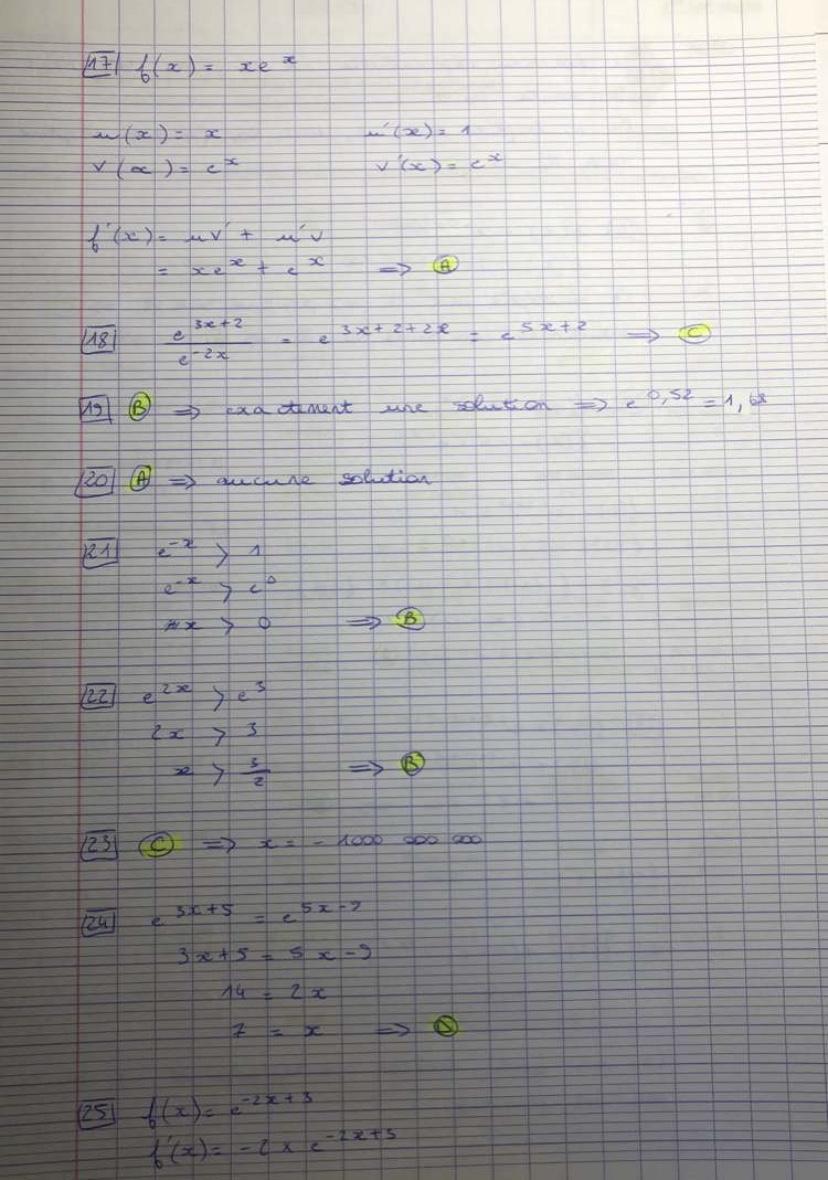 17 f(x) = xe^x
u(x) = x u'(x) = 1
v(x) = e^x v'(x) = e^x
f'(x) = uv' + u'v
= xe^x + e^x ⇒ A
18 e^(3x+2) / e^(-2x) = e^(3x+2+2x) = e^(5x+2) ⇒ C
19 B ⇒ exactement une solution ⇒ e^0,52 = 1,68
20 A ⇒ aucune solution
21 e^-x > 1
e^-x > e^0
-x > 0 ⇒ B
22 e^2x > e^3
2x > 3
x > 3/2 ⇒ B
23 C ⇒ x = - 1000 000 000
24 e^(3x+5) = e^(5x-9)
3x+5 = 5x-9
14 = 2x
7 = x ⇒ D
25 f(x) = e^(-2x+3)
f'(x) = -2 × e^(-2x+3)